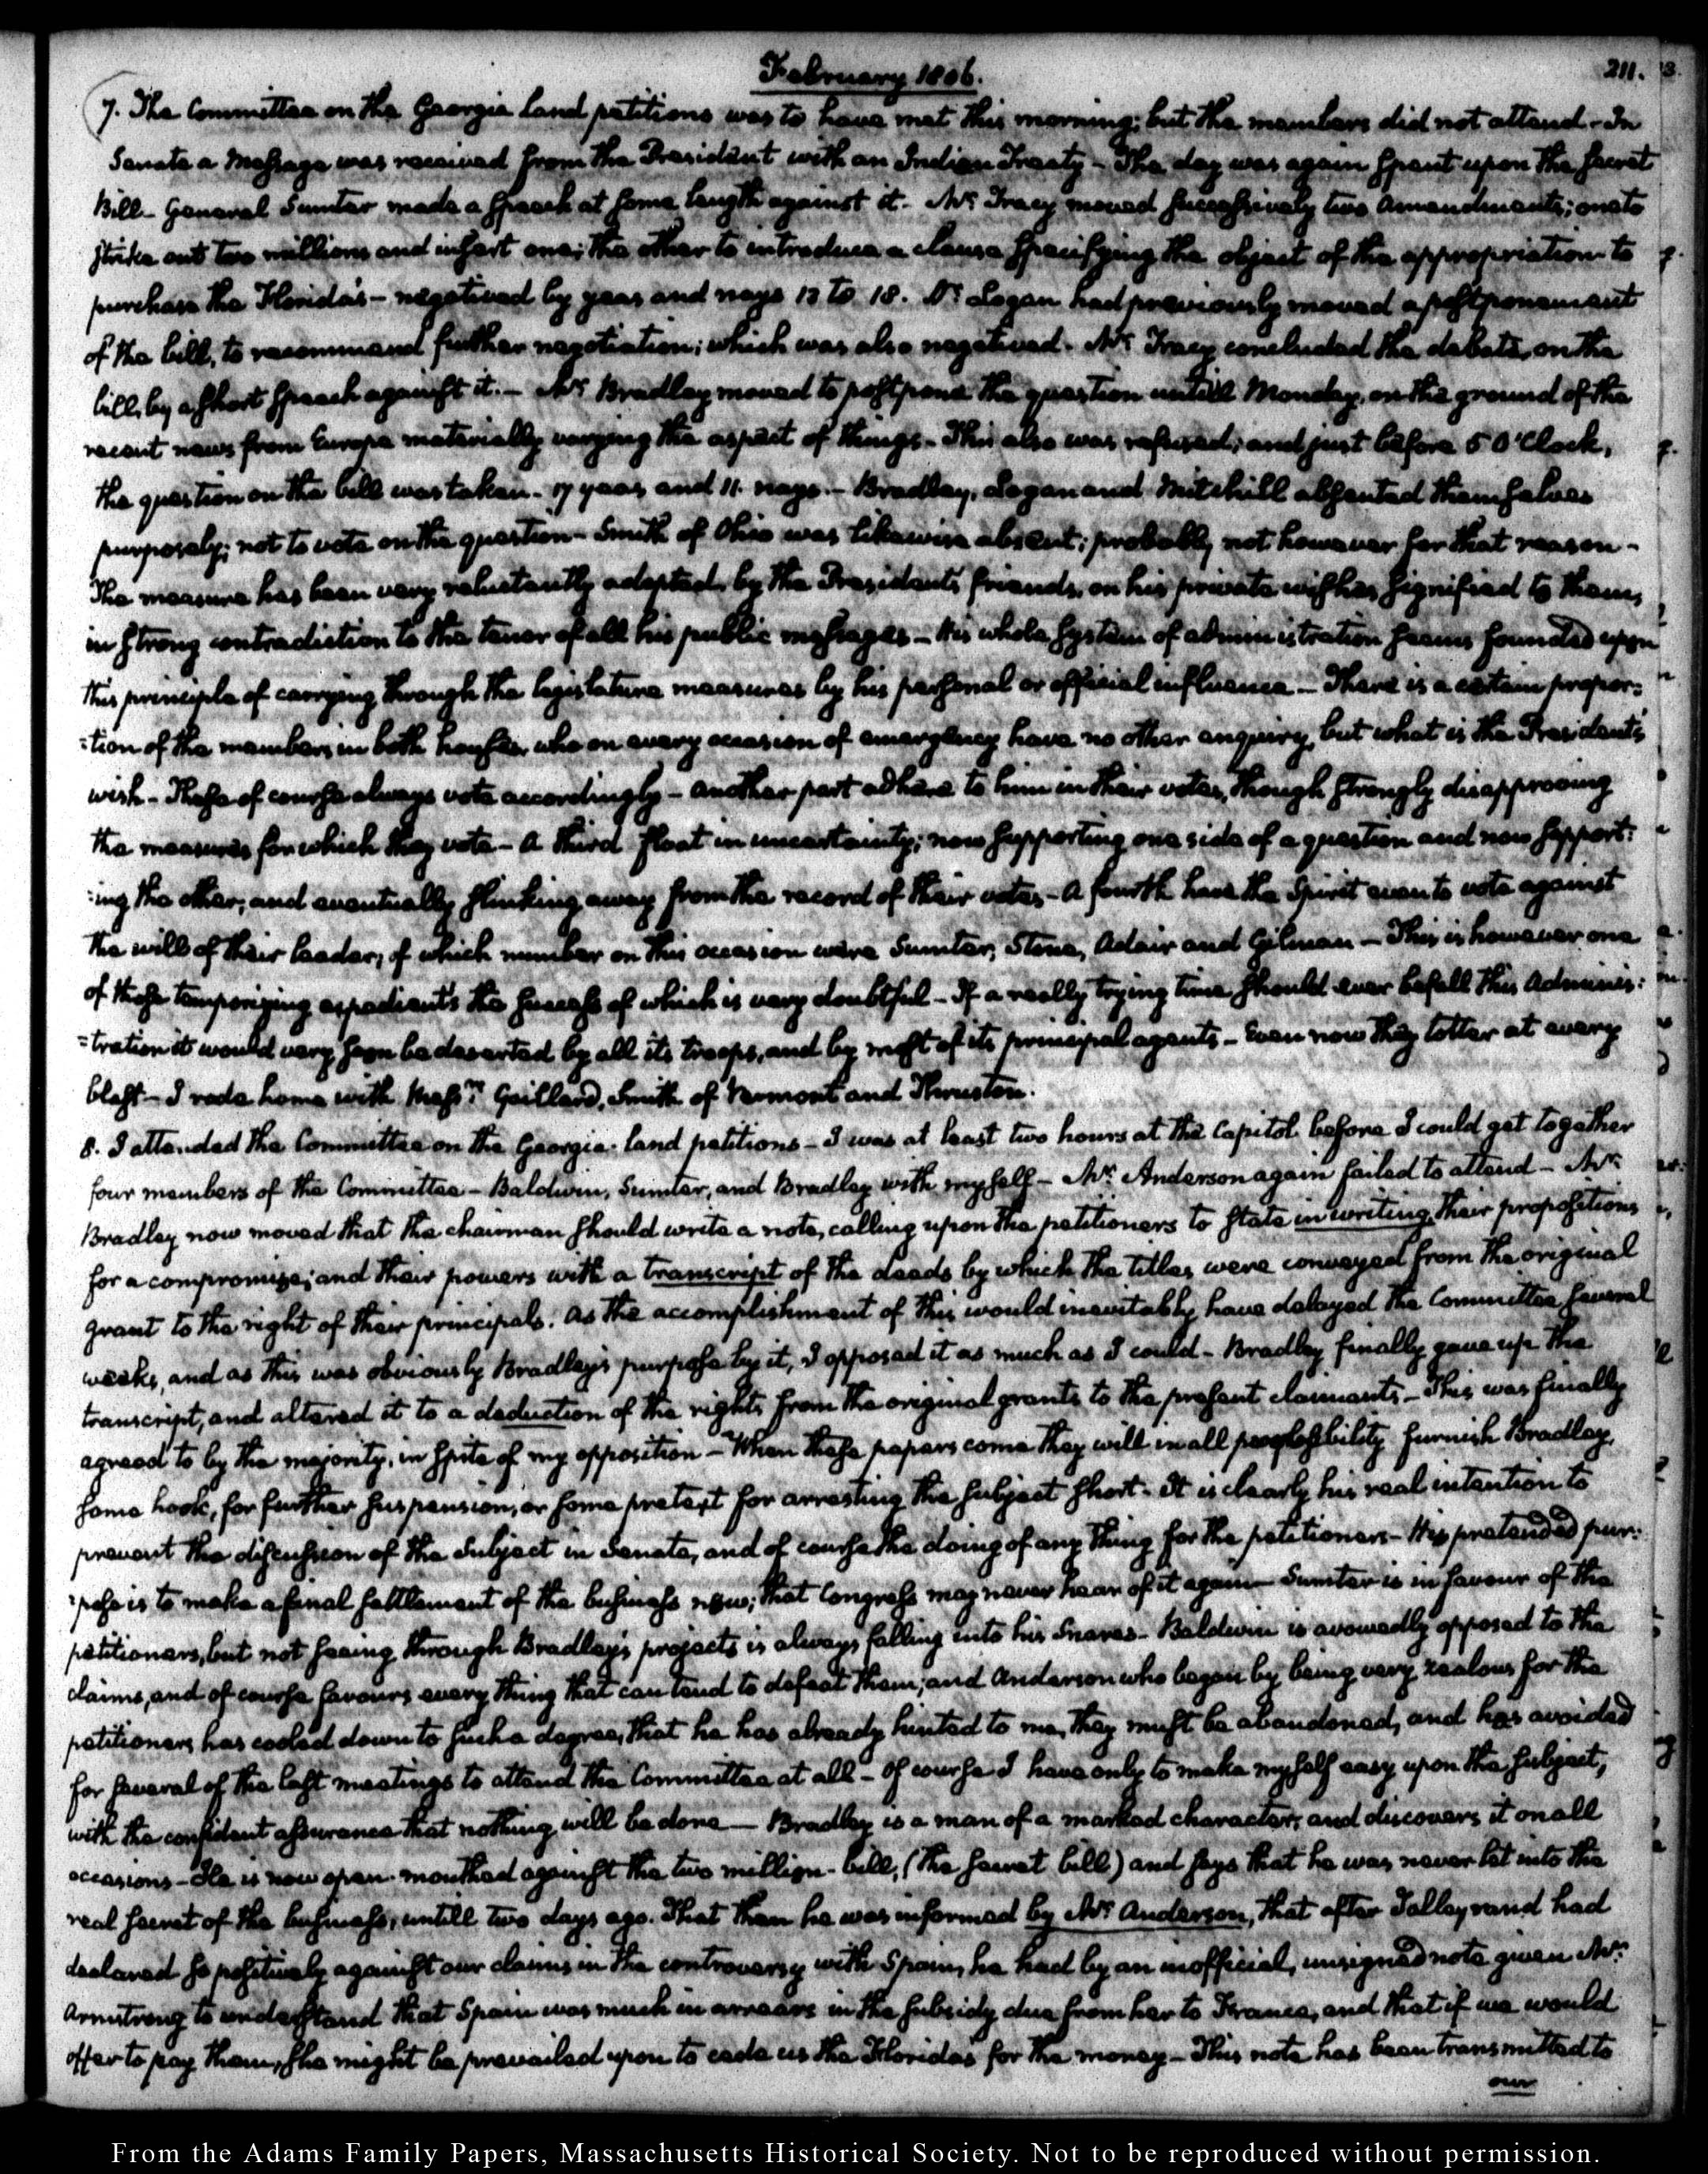 February 1806.
211.
7. The Committee on the Georgia land petitions was to have met this morning; but the members did not attend - In
Senate a Message was received from the President with an Indian Treaty - The day was again spent upon the secret
Bill - General Sumter made a speech at some length against it. - Mr. Tracy moved successively two amendments; one to
strike out two millions and insert one; the other to introduce a clause specifying the object of the appropriation to
purchase the Florida's - negatived by yeas and nays 13 to 18. Dr. Logan had previously moved a postponement
of the bill, to recommend further negotiation; which was also negatived. Mr. Tracy concluded the debate, on the
bill, by a short speech against it. - Mr. Bradley moved to postpone the question untill Monday, on the ground of the
recent news from Europe materially varying the aspect of things - This also was refused; and just before 5 O'Clock,
the question on the bill was taken. 17 yeas and 11 nays. - Bradley, Logan and Mitchill absented themselves
purposely; not to vote on the question - Smith of Ohio was likewise absent; probably not however for that reason -
The measure has been very reluctantly adopted by the President's friends, on his private wishes signified to them,
in strong contradiction to the tenor of all his public messages - His whole system of administration seems founded upon
this principle of carrying through the legislature measures by his personal or official influence - There is a certain propor:
:tion of the members in both houses, who on every occasion of emergency have no other enquiry, but what is the President's
wish - These of course always vote accordingly - Another part adhere to him in their votes, though strongly disapproving
the measures for which they vote - A third float in uncertainty; now supporting one side of a question and now support:
:ing the other, and eventually slinking away from the record of their votes - A fourth have the Spirit even to vote against
the will of their leader; of which number on this occasion were Sumter, Stone, Adair and Gilman - This is however one
of those temporizing expedients the success of which is very doubtful - If a really trying time should ever befall this Adminis:
:tration it would very soon be deserted by all its troops, and by most of its principal agents - Even now they totter at every
blast - I rode home with Messrs. Gaillard, Smith of Vermont and Thruston.
8. I attended the Committee on the Georgia land petitions - I was at least two hours at the Capitol before I could get together
four members of the Committee - Baldwin, Sumter, and Bradley with myself - Mr. Anderson again failed to attend - Mr.
Bradley now moved that the chairman should write a note, calling upon the petitioners to state in writing, their propositions
for a compromise; and their powers with a transcript of the deeds by which the titles were conveyed from the original
grant to the right of their principals. As the accomplishment of this would inevitably have delayed the Committee several
weeks, and as this was obviously Bradley's purpose by it, I opposed it as much as I could - Bradley finally gave up the
transcript, and altered it to a deduction of the rights from the original grants to the present claimants - This was finally
agreed to by the majority, in spite of my opposition - When these papers come they will in all probability furnish Bradley,
some hook, for further suspension, or some pretext for arresting the subject short. It is clearly his real intention to
prevent the discussion of the Subject in Senate, and of course the doing of any thing for the petitioners - His pretended pur:
:pose is to make a final settlement of the business now; that Congress may never hear of it again - Sumter is in favour of the
petitioners, but not seeing through Bradley's projects is always falling into his Snares - Baldwin is avowedly opposed to the
claims, and of course favours every thing that can tend to defeat them; and Anderson who began by being very zealous for the
petitioners has cooled down to such a degree, that he has already hinted to me, they must be abandoned, and has avoided
for several of the last meetings to attend the Committee at all - Of course I have only to make myself easy upon the subject,
with the confident assurance that nothing will be done - Bradley is a man of a marked character, and discovers it on all
occasions - He is now open-mouthed against the two million-bill, (the secret bill) and says that he was never let into the
real secret of the business, untill two days ago. That then he was informed by Mr. Anderson, that after Talleyrand had
declared so positively against our claims in the controversy with Spain, he had by an inofficial, unsigned note given Mr.
Armstrong to understand that Spain was much in arrears in the subsidy due from her to France, and that if we would
offer to pay them, she might be prevailed upon to cede us the Florida's for the money - This note has been transmitted to
our
From the Adams Family Papers, Massachusetts Historical Society. Not to be reproduced without permission.